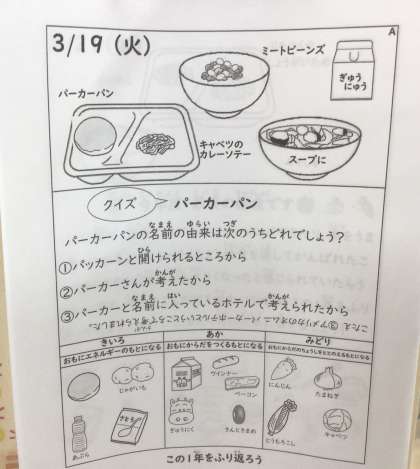 A
3/19（火）
ミートビーンズ
ぎゅうにゅう
パーカーパン
キャベツのカレーソテー
スープに
クイズ パーカーパン
パーカーパンの名前の由来は次のうちどれでしょう？
①パッカーンと開けられるところから
②パーカーさんが考えたから
③パーカーと名前に入っているホテルで考えられたから
こたえ ③アメリカのオムニ・パーカーハウスホテルというところで考えられました。
きいろ あか みどり
おもにエネルギーのもとになる おもにからだをつくるもとになる おもにからだのちょうしをととのえるもとになる
じゃがいも
ウインナー
ベーコン
にんじん
たまねぎ
あぶら
さとう
ぎゅうにく
きんときまめ
とうもろこし
キャベツ
この１年をふり返ろう